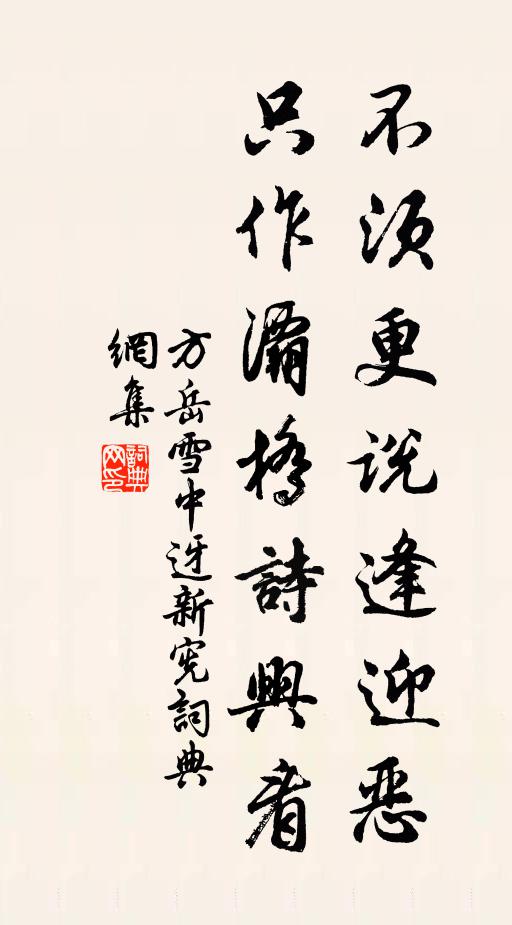 不須更説逢迎惡
只作灞橋詩興看
方岳雪中迓新憲詞典
網集
詞典
网印